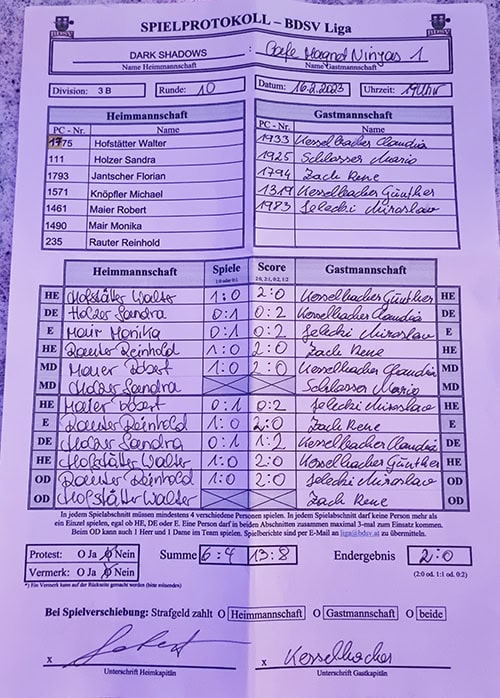 SPIELPROTOKOLL – BDSV Liga
DARK SHADOWS : Cafe Morgnot Ninjas 1
Name Heimmannschaft Name Gastmannschaft
Division: 3 B Runde: 10 Datum: 16.2.2023 Uhrzeit: 19 Uhr
Heimmannschaft Gastmannschaft
PC - Nr. Name PC - Nr. Name
1775 Hofstätter Walter 1933 Kesselbacher Claudia
111 Holzer Sandra 1925 Schlosser Mario
1793 Jantscher Florian 1794 Zach Rene
1571 Knöpfler Michael 1319 Kesselbacher Günther
1461 Maier Robert 1983 Jelecki Miroslaw
1490 Mair Monika
235 Rauter Reinhold
Heimmannschaft Spiele Score Gastmannschaft
1:0 oder 0:1 2:0, 2:1, 0:2, 1:2
HE Hofstätter Walter 1:0 2:0 Kesselbacher Günther HE
DE Holzer Sandra 0:1 0:2 Kesselbacher Claudia DE
E Mair Monika 0:1 0:2 Jelecki Miroslaw E
HE Rauter Reinhold 1:0 2:0 Zach Rene HE
MD Maier Robert 1:0 2:0 Kesselbacher Claudia MD
MD Holzer Sandra Schlosser Mario MD
HE Maier Robert 0:1 0:2 Jelecki Miroslaw HE
E Rauter Reinhold 1:0 2:0 Zach Rene E
DE Holzer Sandra 0:1 1:2 Kesselbacher Claudia DE
HE Hofstätter Walter 1:0 2:0 Kesselbacher Günther HE
OD Rauter Reinhold 1:0 2:0 Jelecki Miroslaw OD
OD Hofstätter Walter Zach Rene OD
In jedem Spielabschnitt müssen mindestens 4 verschiedene Personen spielen. In jedem Spielabschnitt darf keine Person mehr als
ein Einzel spielen, egal ob HE, DE oder E. Eine Person darf in beiden Abschnitten zusammen maximal 3-mal zum Einsatz kommen.
Beim OD kann auch 1 Herr und 1 Dame im Team spielen. Spielberichte sind per E-Mail an liga@bdsv.at zu übermitteln.
Protest: O Ja O Nein Summe 6:4 13:8 Endergebnis 2:0
Vermerk: O Ja O Nein (2:0 od. 1:1 od. 0:2)
*) Ein Vermerk kann auf der Rückseite gemacht werden (bitte mitsenden)
Bei Spielverschiebung: Strafgeld zahlt O Heimmannschaft O Gastmannschaft O beide
x x Kesselbacher
Unterschrift Heimkapitän Unterschrift Gastkapitän